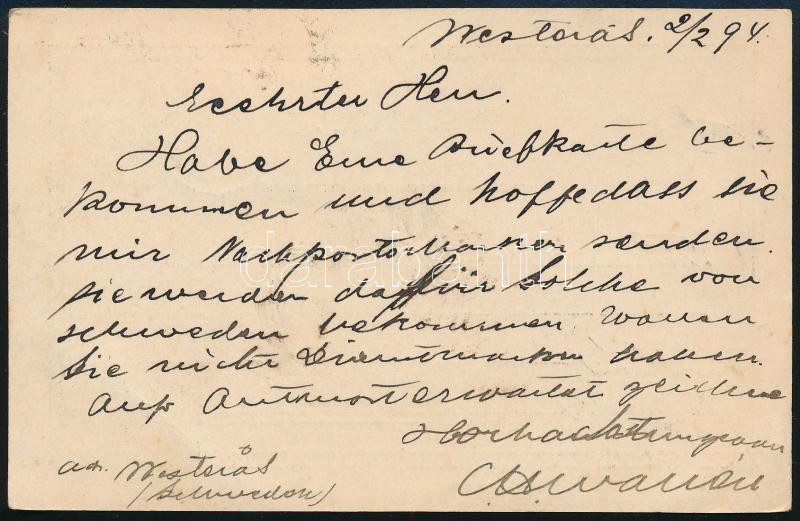 Westerås. 2/2 94.
Geehrter Herr.
Habe Eine Briefkarte be-
kommen und hoffe dass sie
mir Nachportomarken senden.
sie werden daffür solche von
schweden bekommen. Wollen
Sie nicht Dienstmarken haben.
Auf Antwort erwartet zeichne
Hochachtungsvoll
adr. Westerås
(Schweden)
darabanth